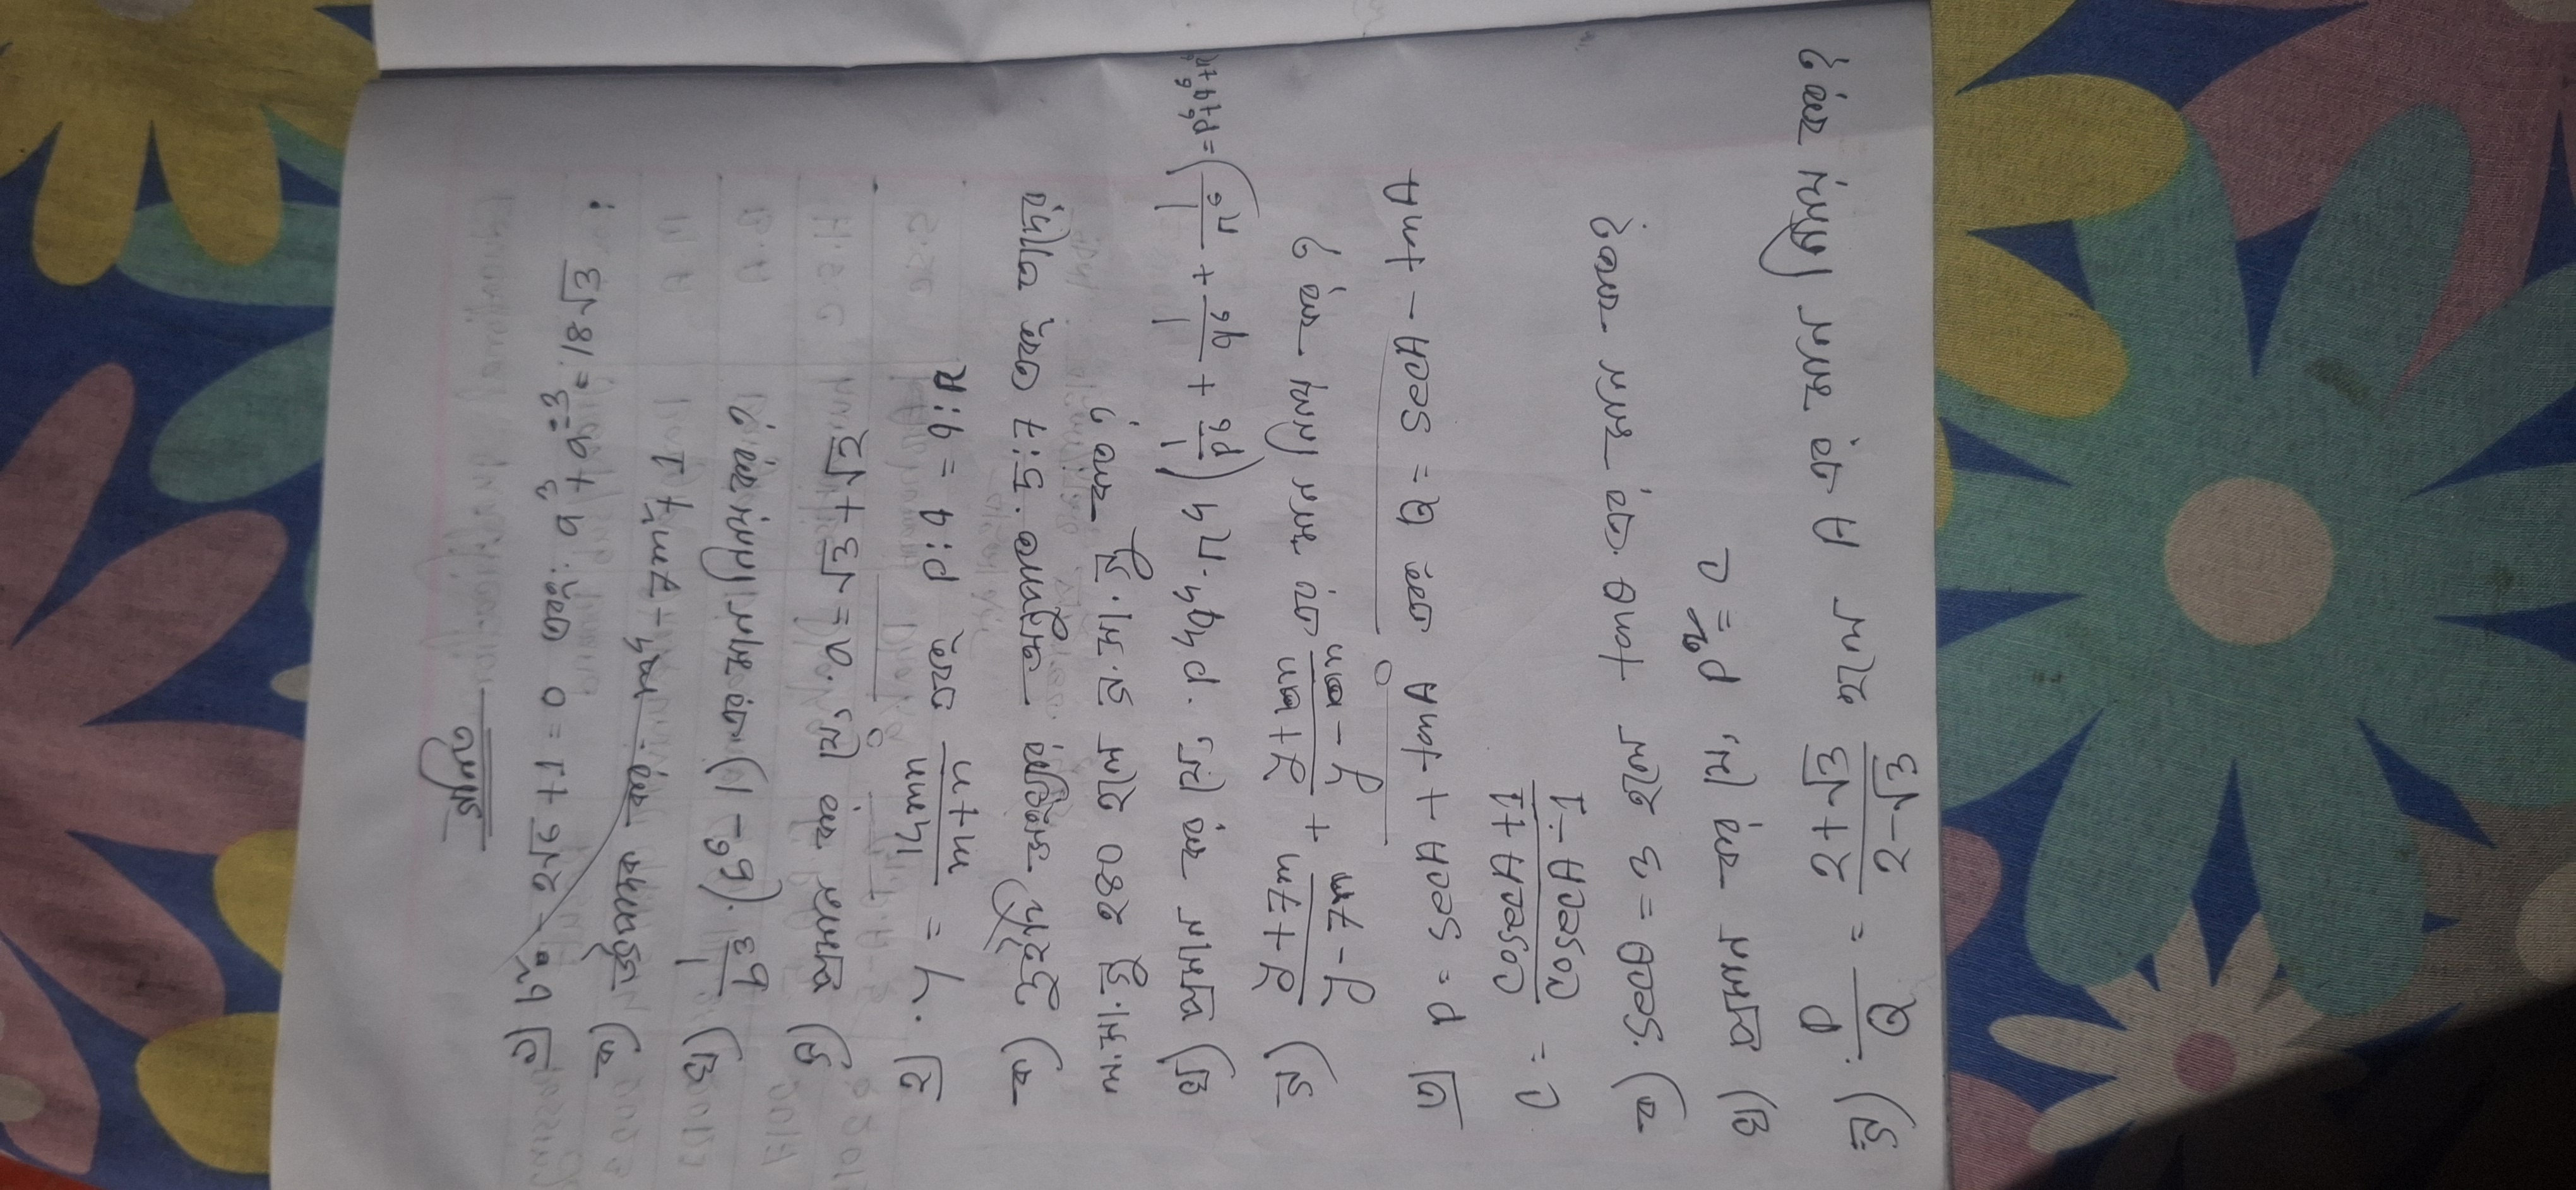 গনিত
১) b² - 2√6 + 1 = 0 এবং a³ + a⁻³ = 18√3 ;
ক) উৎপাদক কর - m⁴ - 7m² + 1
খ) 1/b³ (b⁶ - 1) এর মান নিনয় কর?
গ) প্রমান কর যে, a = √3 + √2
২) y = 14mn/m+n এবং P:q = q:R
ক) দুইটি সংখ্যার অনুপাত 5:7 এবং তাদের
ল.সা.গু ২৪০ হলে গ.সা.গু কত?
খ) প্রমান কর যে, P⁴q⁴r⁴ (1/P⁶ + 1/q⁶ + 1/r⁶) = P⁶+q⁶+r⁶
গ) y+7m/y-7m + এর মান নিনয় কর?
৩) P = secA + tanA এবং Q = secA - tanA
C = cosecA+1/cosecA-1
ক) secθ = 3 হলে tanθ এর মান কত?
খ) প্রমান কর যে, P² = C
গ) P/Q = 2+√3/2-√3 হলে A এর মান নিনয় কর?